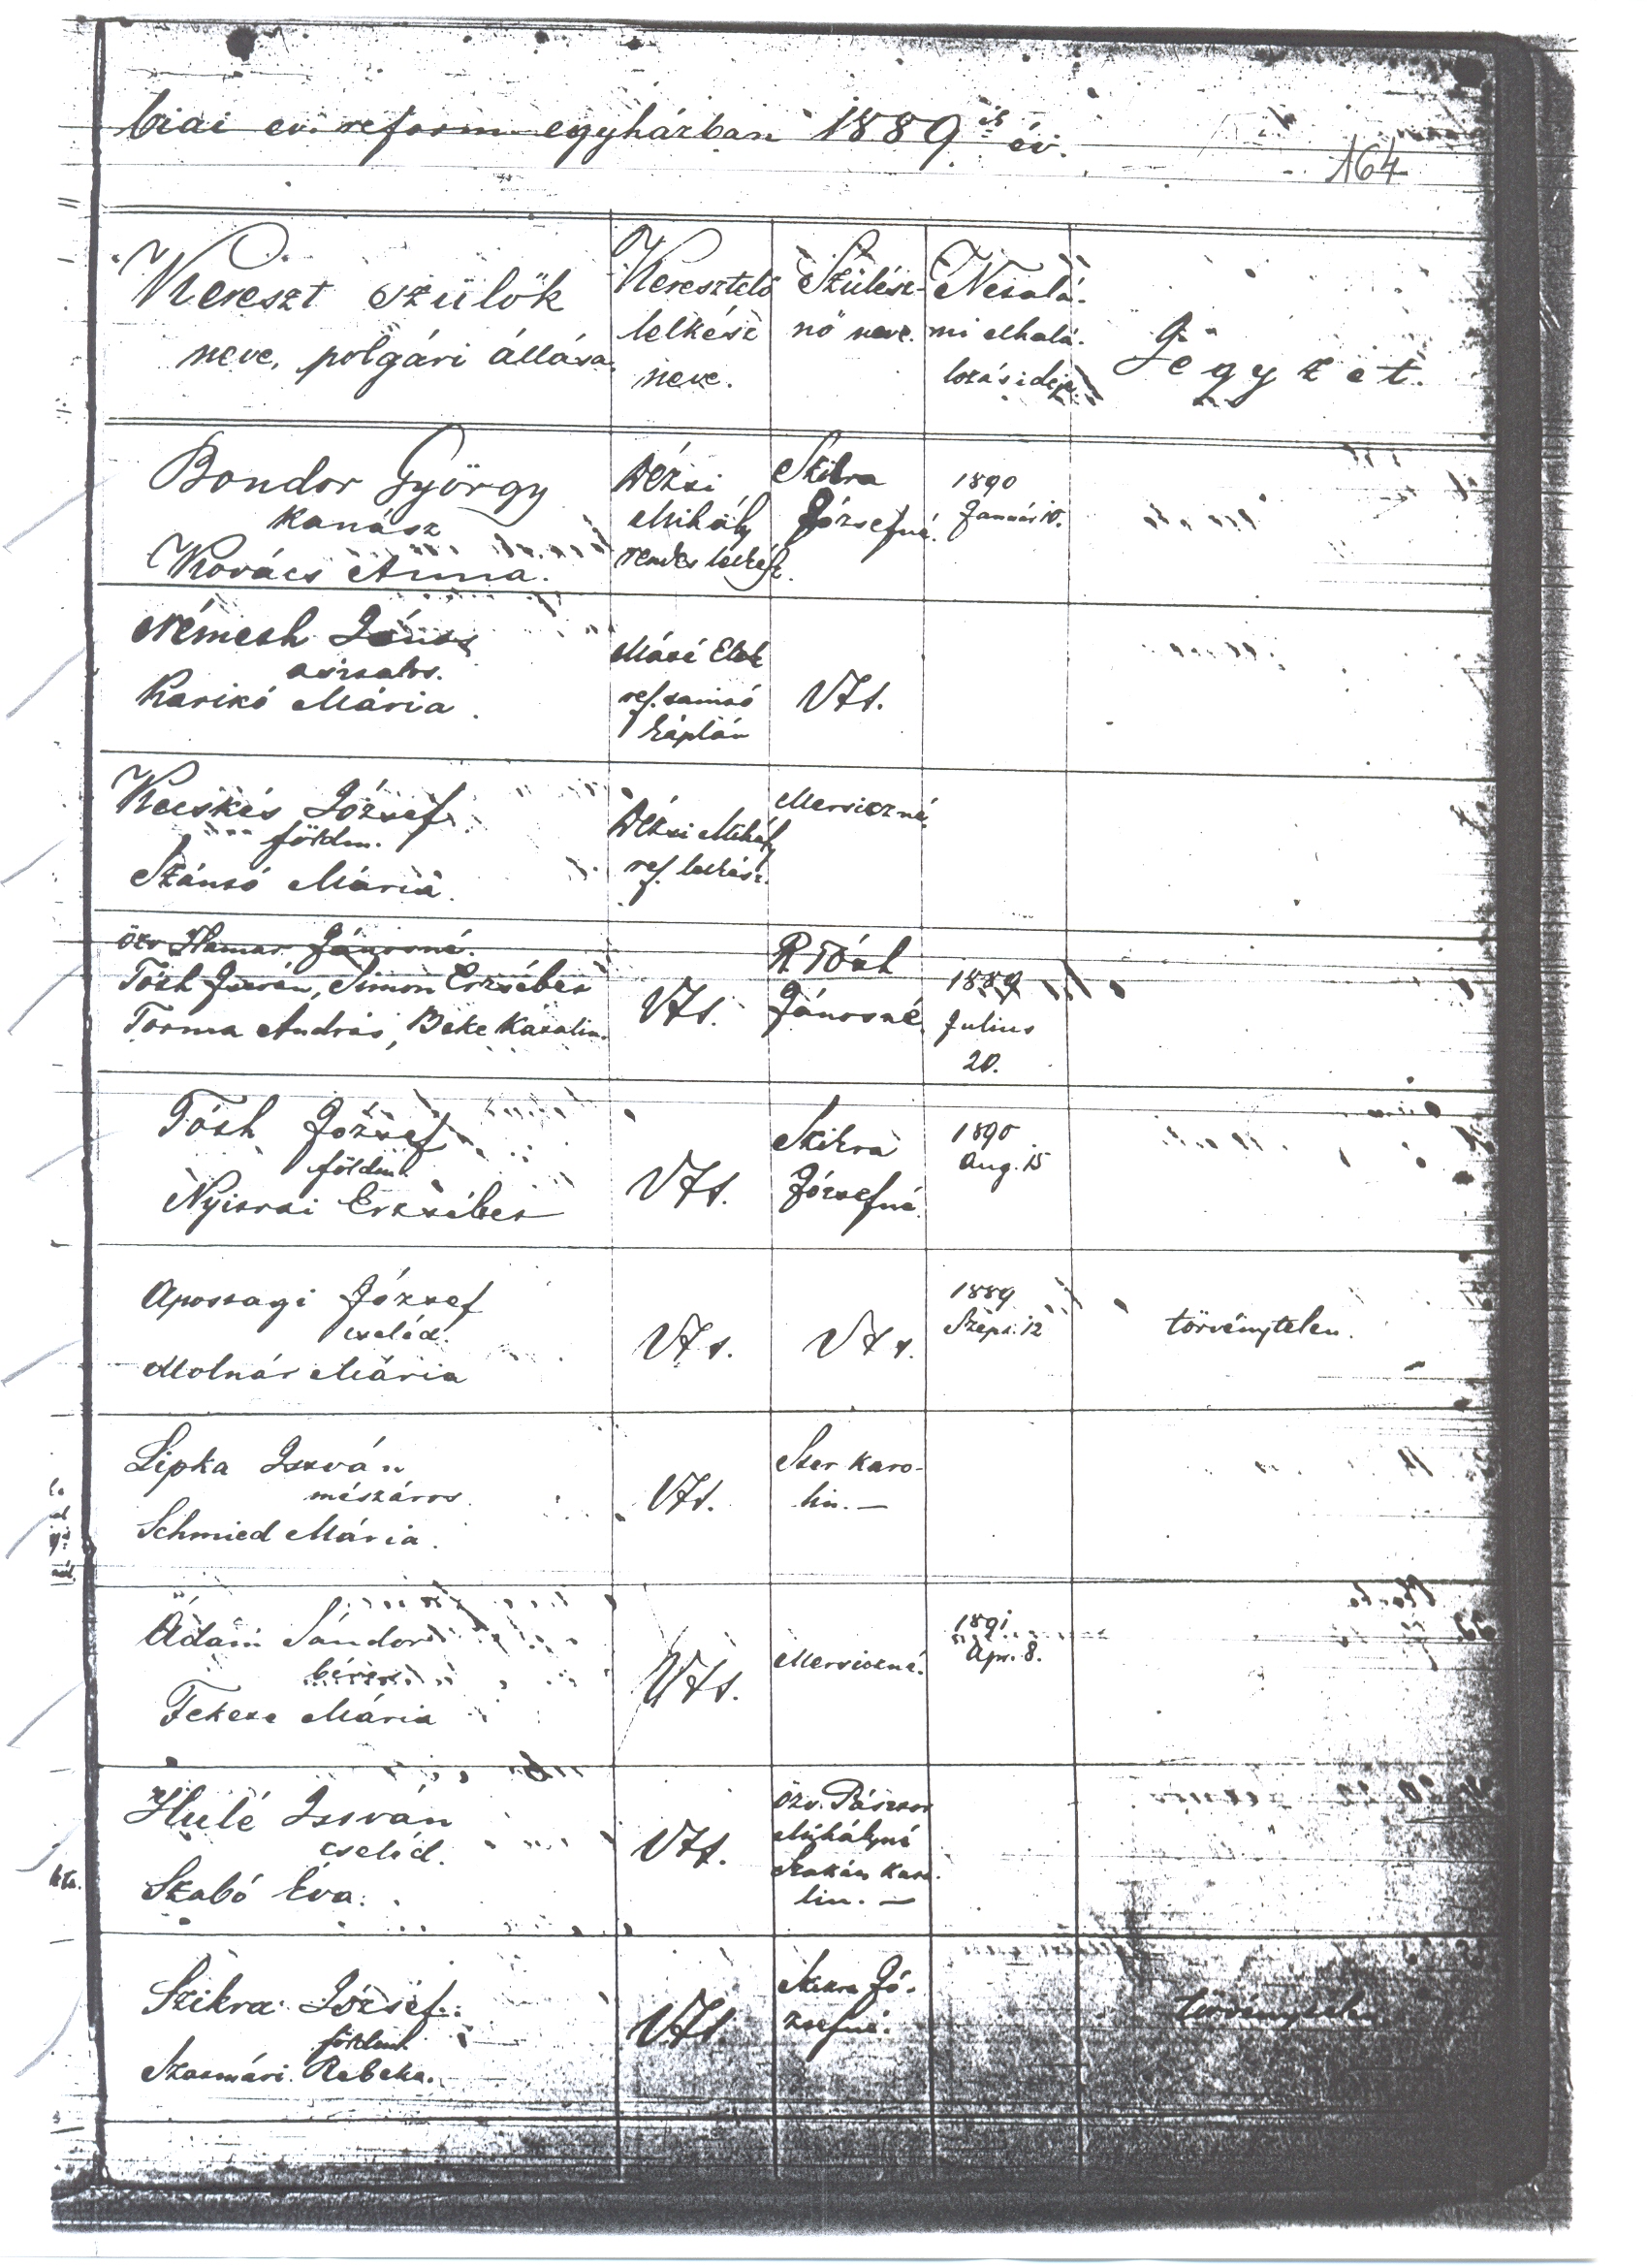 biai ev. reform. egyházban 1889 ik év.
164
Kereszt szülők
neve, polgári állása.
Keresztelő
lelkész
neve.
Szülész-
nő neve.
Netalá-
mi elhalá-
lozás ideje
Jegyzet.
Bondor György
kanász
Kovács Anna.
Dézsi
Mihály
rendes lelkész.
Szikra
Józsefné.
1890
Január 10.
Németh János
asztalos.
Karikó Mária.
Máté Elek
ref. tanító
káplán
Uts.
Kecskés József
földm.
Szántó Mária.
Dézsi Mihály
ref. lelkész.
özv Hamar Jánosné.
Tóth István, Simon Erzsébet
Torma András, Beke Katalin.
Uts.
R Tóth
Jánosné.
1889
Julius
20.
Tóth József
földm.
Erzsébet
Uts.
Szikra
Józsefné.
1890
Aug. 15
Apostagi József
cseléd.
Molnár Mária
Uts.
Uts.
1889
Szept. 12
törvénytelen.
Lipka István
mészáros.
Schmied Mária.
Uts.
Karo-
lin. —
Ádám Sándor
béres
Fekete Mária
Uts.
1891
Apr. 8.
Hulé István
cseléd.
Szabó Éva.
Uts.
özv. Pásztor
Mihályné
Szakáts Karo-
lin. —
Szikra József.
földm.
Szatmári Rebeka.
Uts.
Szikra Jó-
zsefné.
törvénytelen.